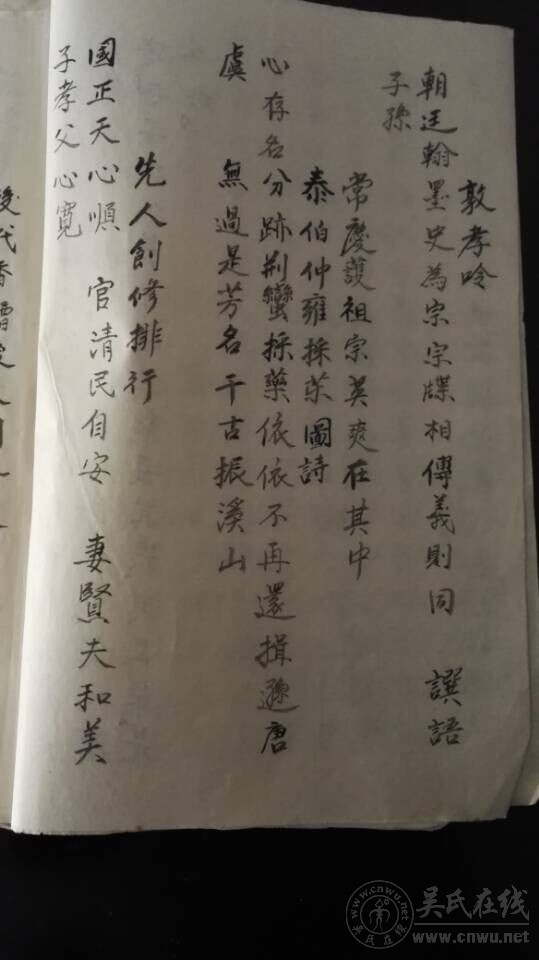 敦孝吟
朝廷翰墨史為宗宗牒相傳義則同　譔語
子孫
常慶護祖宗英爽在其中
泰伯仲雍採茶圖詩
心存名分跡荆蠻採藥依依不再還揖遜唐
虞　無過是芳名千古振溪山
先人創修排行
國正天心順　官清民自安　妻賢夫和美
子孝父心寬
後代香
吴氏在线
www.cnwu.net